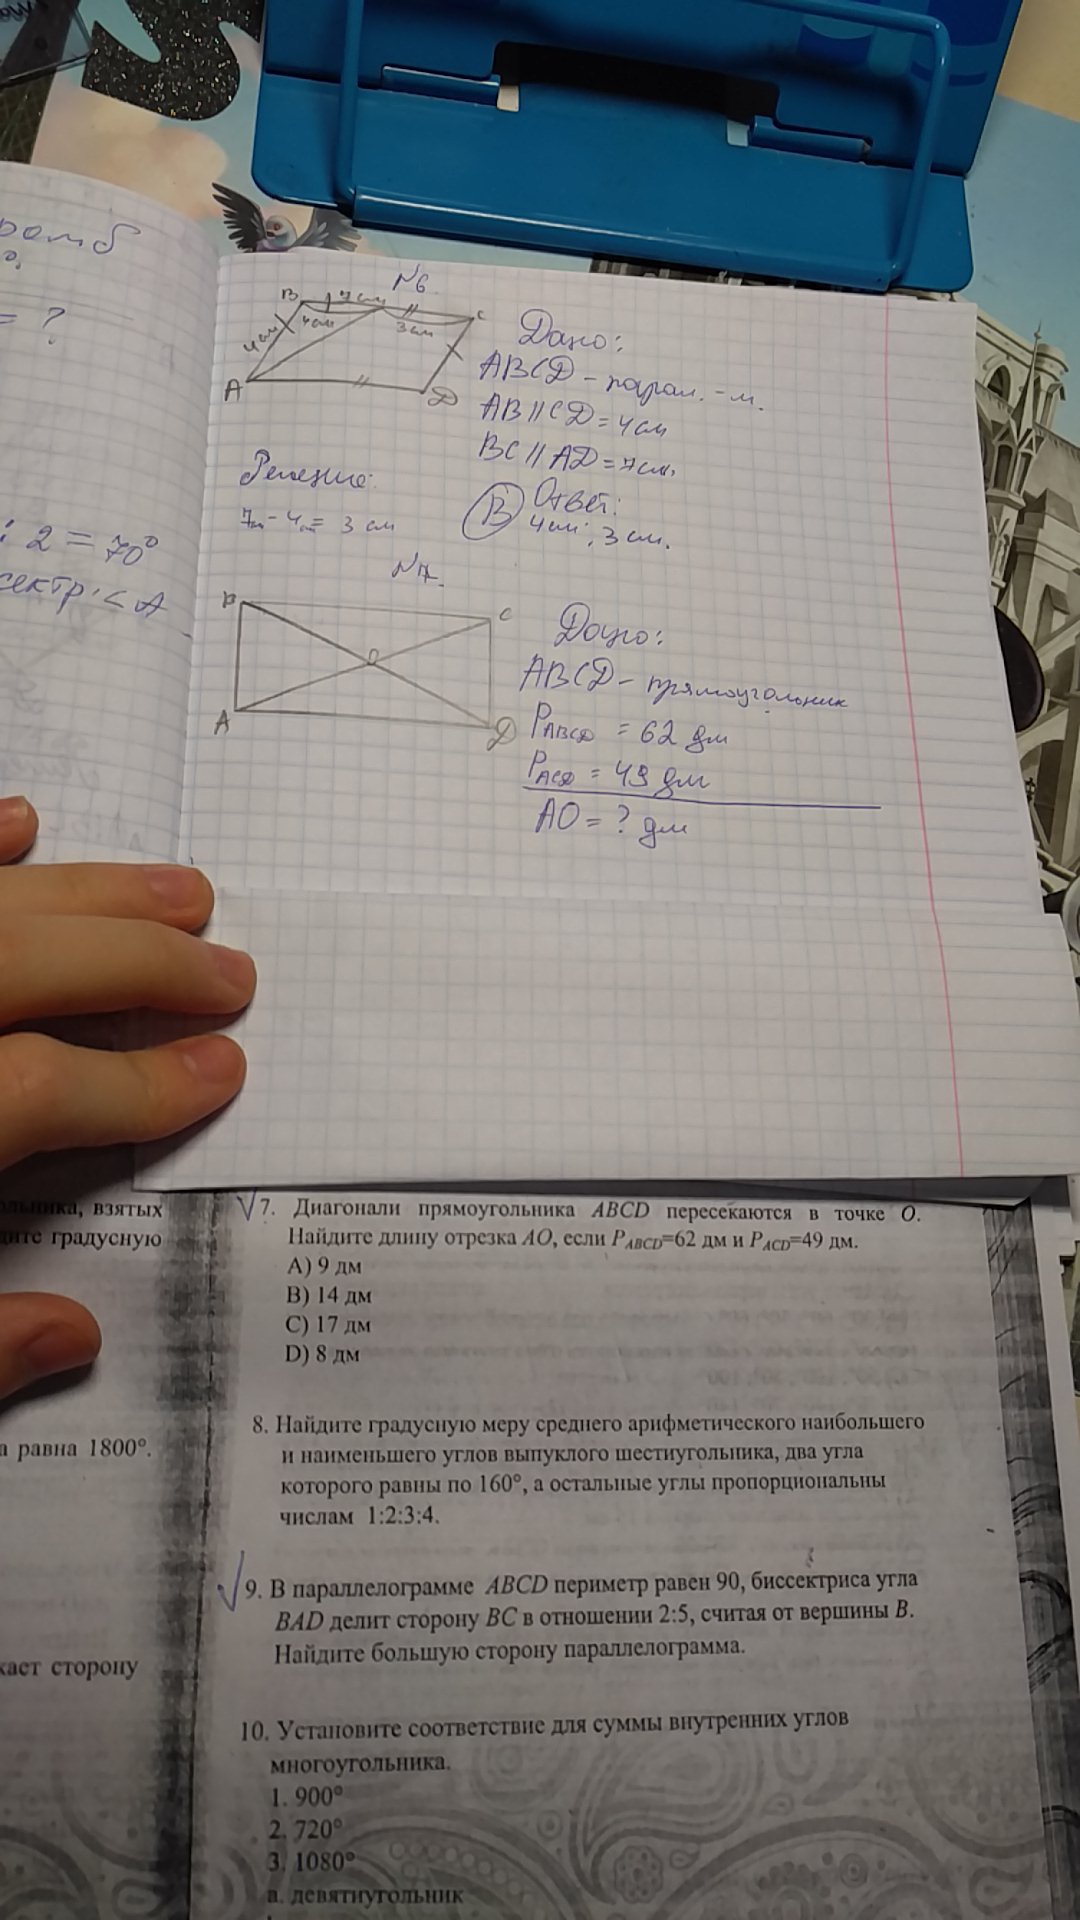 ромб
= ?
: 2 = 70°
сектр. < A
N6
B 7см C
4см 4см 3см
A D
Дано:
ABCD - парал. - м.
AB || CD = 4см
BC || AD = 7см.
Решение:
7см - 4см = 3 см
B) Ответ:
4см; 3 см.
N7.
B C
O
A D
Дано:
ABCD - прямоугольник
PABCD = 62 дм
PACD = 49 дм
AO = ? дм
ольника, взятых
дите градусную
а равна 1800°.
кает сторону
7. Диагонали прямоугольника ABCD пересекаются в точке O.
Найдите длину отрезка AO, если PABCD=62 дм и PACD=49 дм.
A) 9 дм
B) 14 дм
C) 17 дм
D) 8 дм
8. Найдите градусную меру среднего арифметического наибольшего
и наименьшего углов выпуклого шестиугольника, два угла
которого равны по 160°, а остальные углы пропорциональны
числам 1:2:3:4.
9. В параллелограмме ABCD периметр равен 90, биссектриса угла
BAD делит сторону BC в отношении 2:5, считая от вершины B.
Найдите большую сторону параллелограмма.
10. Установите соответствие для суммы внутренних углов
многоугольника.
1. 900°
2. 720°
3. 1080°
а. девятиугольник